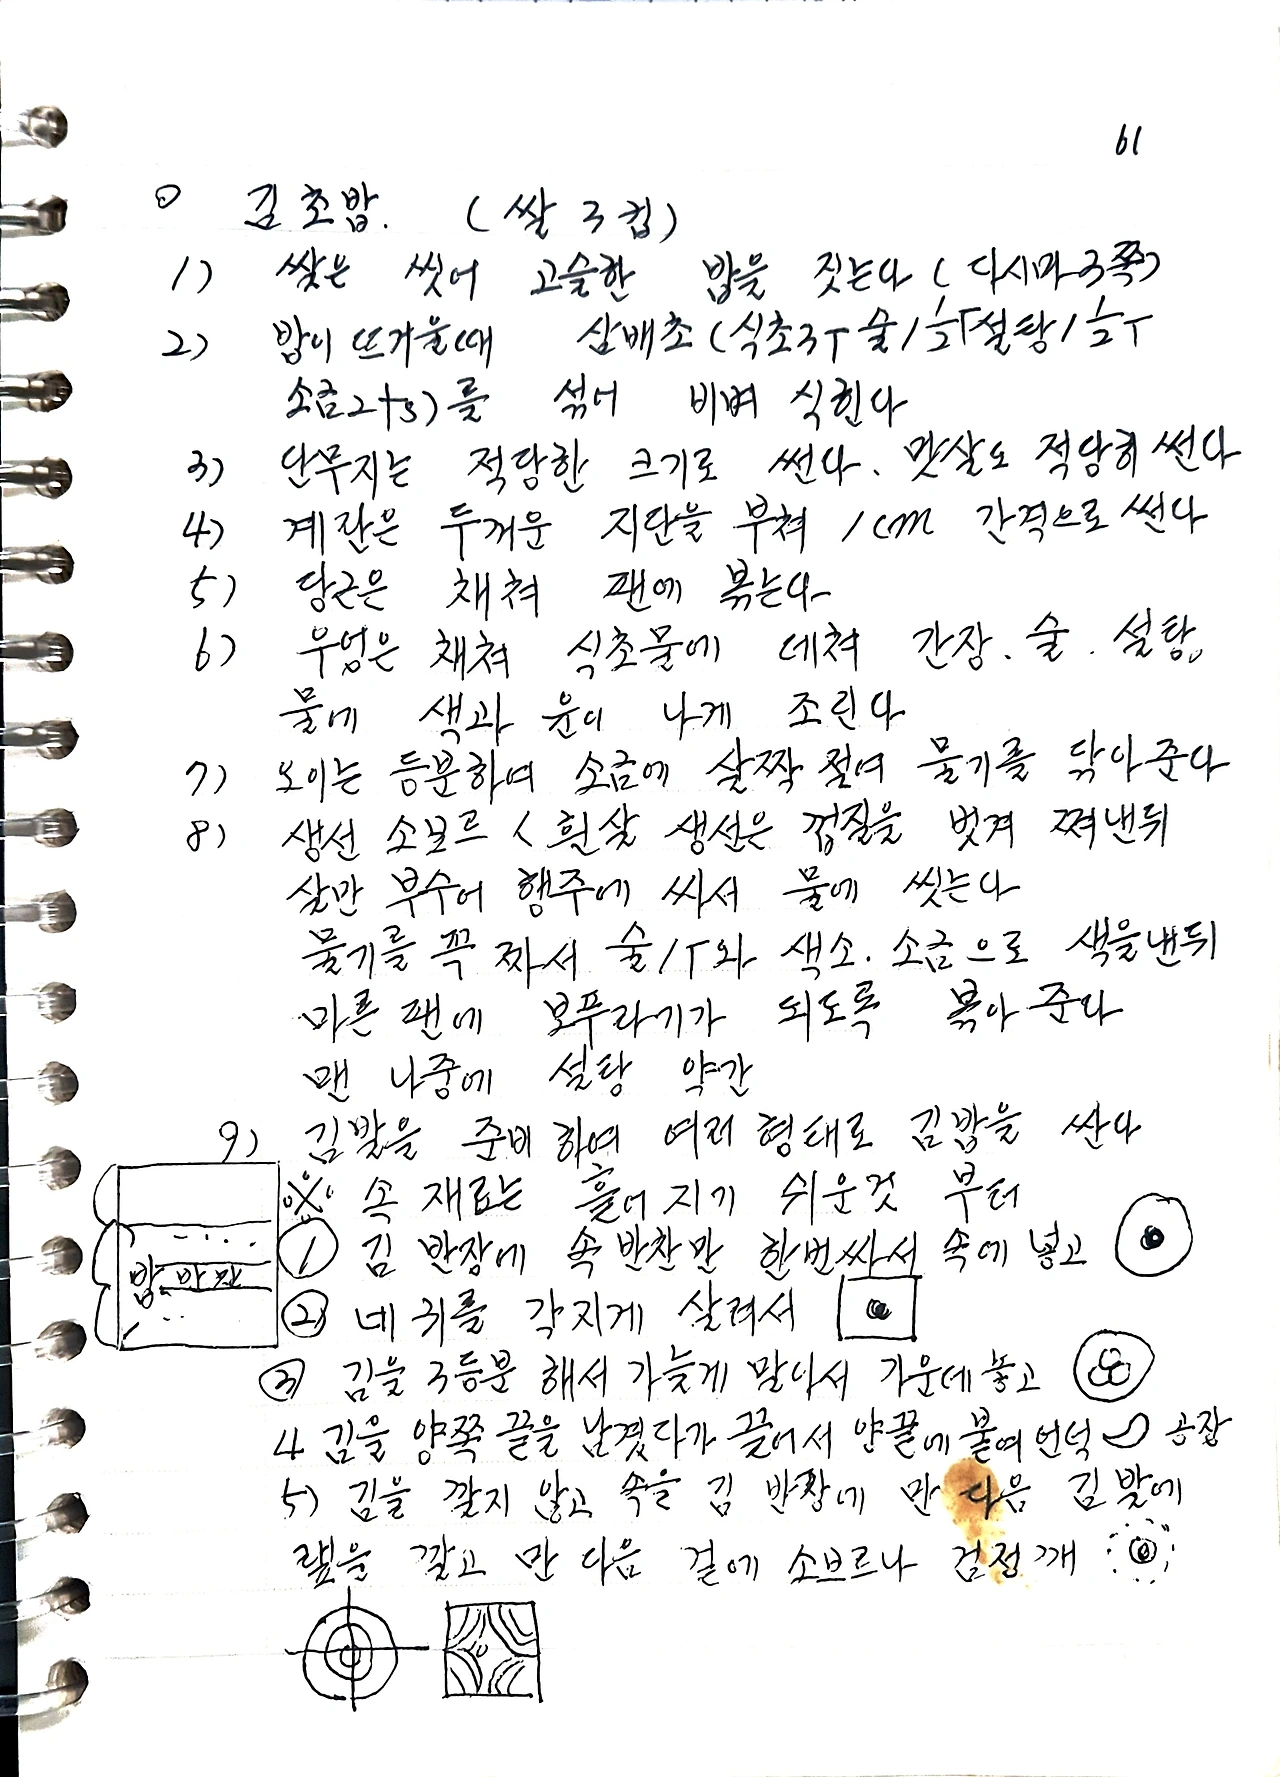 61
○ 김초밥. (쌀 3컵)
1) 쌀은 씻어 고슬한 밥을 짓는다 (다시마 3쪽)
2) 밥이 뜨거울때 삼배초 (식초3T 술 1 1/2T 설탕 1 1/2T
소금2ts)를 섞어 비벼 식힌다
3) 단무지는 적당한 크기로 썬다. 맛살도 적당히 썬다
4) 계란은 두꺼운 지단을 부쳐 1cm 간격으로 썬다
5) 당근은 채쳐 팬에 볶는다
6) 우엉은 채쳐 식초물에 데쳐 간장. 술. 설탕.
물에 색과 윤이 나게 조린다
7) 오이는 등분하여 소금에 살짝 절여 물기를 닦아준다
8) 생선 소보르 < 흰살 생선은 껍질을 벗겨 쪄낸뒤
살만 부수어 행주에 싸서 물에 씻는다
물기를 꼭 짜서 술1T와 색소. 소금으로 색을낸뒤
마른 팬에 보푸라기가 되도록 볶아 준다
맨 나중에 설탕 약간
9) 김발을 준비하여 여러 형태로 김밥을 싼다
※ 속 재료는 흩어지기 쉬운것 부터
① 김 반장에 속 반찬만 한번싸서 속에 넣고
밥
② 네 귀를 각지게 살려서
③ 김을 3등분 해서 가늘게 말아서 가운데 놓고
4 김을 양쪽 끝을 남겼다가 끌어서 양끝에 붙여 언덕 공장
5) 김을 깔지 않고 속을 김 반장에 만 다음 김발에
랲을 깔고 만 다음 겉에 소브르나 검정깨